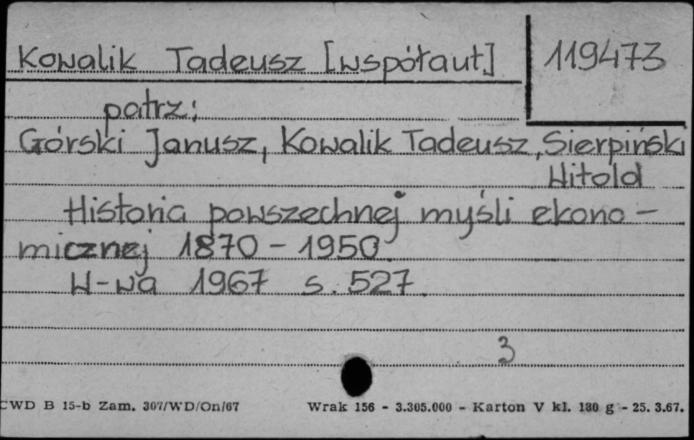 Kowalik Tadeusz [współaut]
119473
patrz:
Górski Janusz, Kowalik Tadeusz, Sierpiński
Witold
Historia powszechnej myśli ekono-
micznej 1870-1950
W-wa 1967 s. 527
3
CWD B 15-b Zam. 307/WD/On/67 Wrak 156 - 3.305.000 - Karton V kl. 180 g - 25. 3.67.